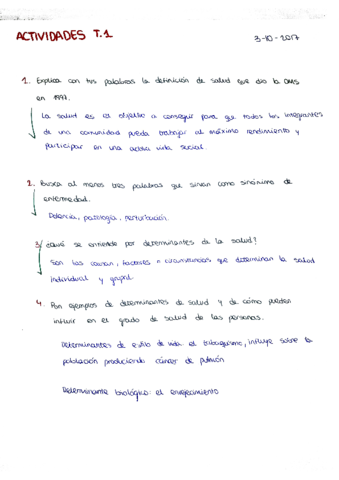 ACTIVIDADES T.1
3-10-2017
1. Explica con tus palabras la definición de salud que dio la OMS
en 1997.
La salud es el objetivo a conseguir para que todos los integrantes
de una comunidad pueda trabajar al máximo rendimiento y
participar en una activa vida social.
2. Busca al menos tres palabras que sirvan como sinónimo de
enfermedad.
Dolencia, patología, perturbación.
3. ¿Qué se entiende por determinantes de la salud?
Son las causas, factores o circunstancias que determinan la salud
individual y grupal.
4. Pon ejemplos de determinantes de salud y de cómo pueden
influir en el grado de salud de las personas.
Determinantes de estilo de vida: el tabaquismo, influye sobre la
población produciendo cáncer de pulmón
Determinante biológico: el envejecimiento